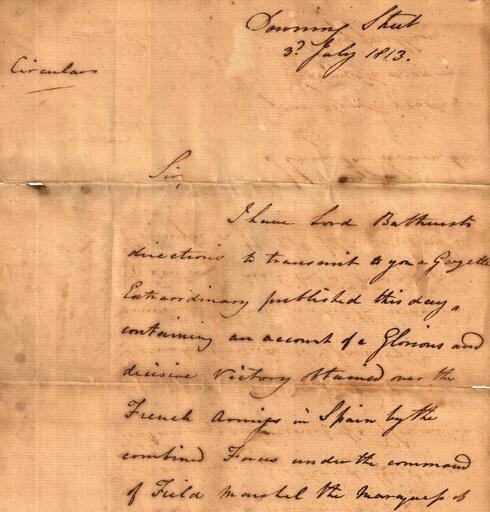 Downing Street
3d July 1813.
Circular
Sir,
I have Lord Bathursts
directions to transmit to you a Gazette
Extraordinary published this day,
containing an account of a Glorious and
decisive Victory obtained over the
French Armies in Spain by the
combined Forces under the command
of Field Marshal the Marquess of